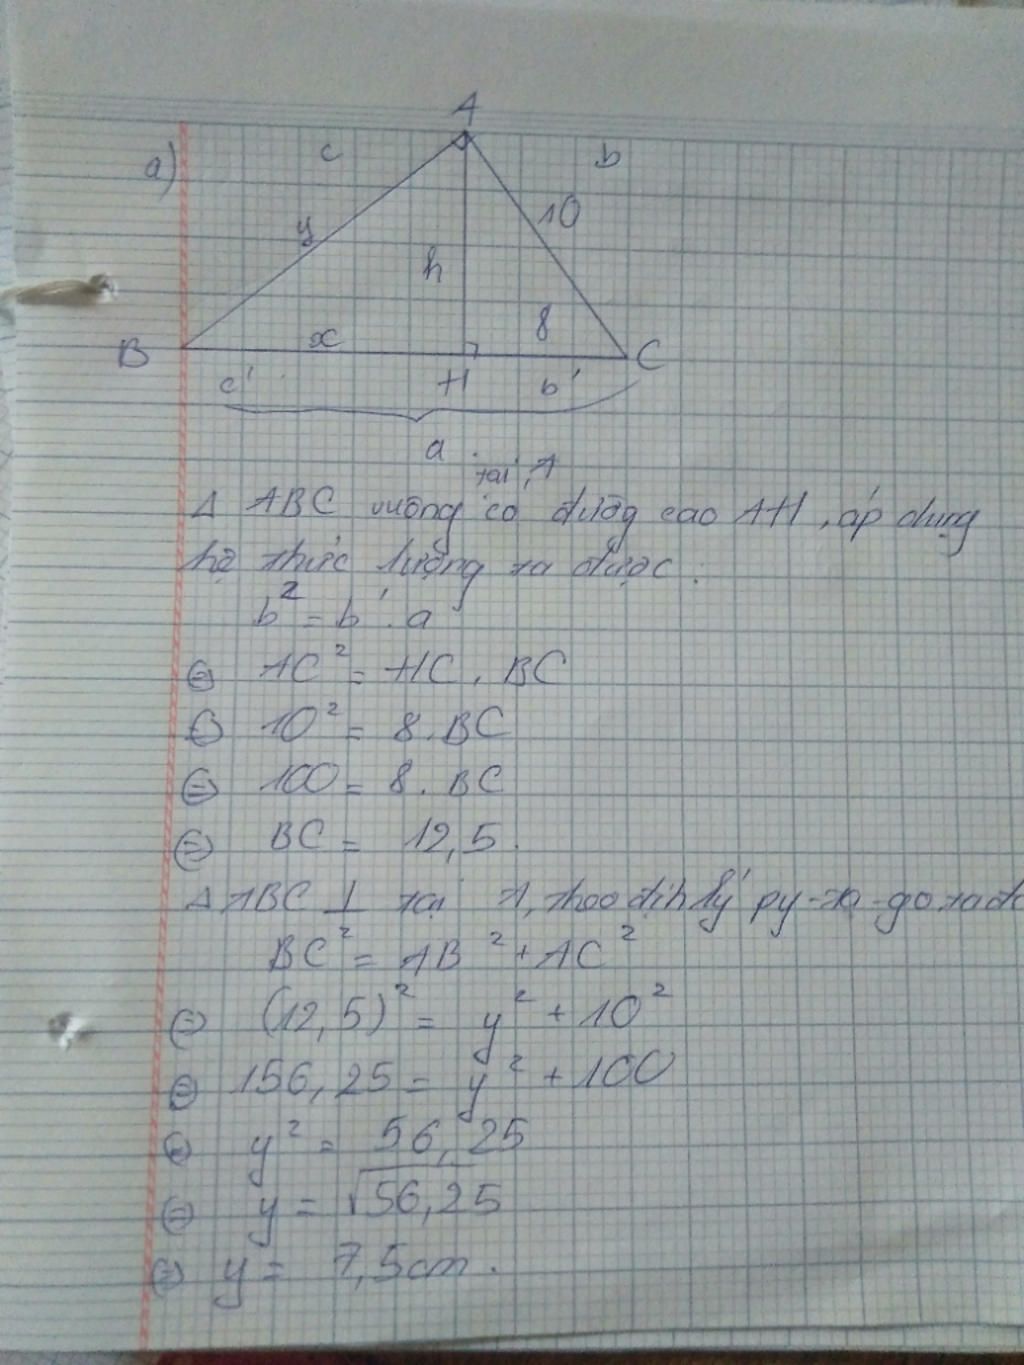 A
a) c b
y 10
h
8
B x C
c' H b'
a
tại A
Δ ABC vuông có đường cao AH, áp dụng
hệ thức lượng ta được:
b² = b'.a
⇔ AC² = HC. BC
⇔ 10² = 8. BC
⇔ 100 = 8. BC
⇔ BC = 12,5.
Δ ABC ⊥ tại A, theo định lý py-ta-go ta đc
BC² = AB² + AC²
⇔ (12,5)² = y² + 10²
⇔ 156,25 = y² + 100
⇔ y² = 56,25
⇔ y = √56,25
⇔ y = 7,5cm.